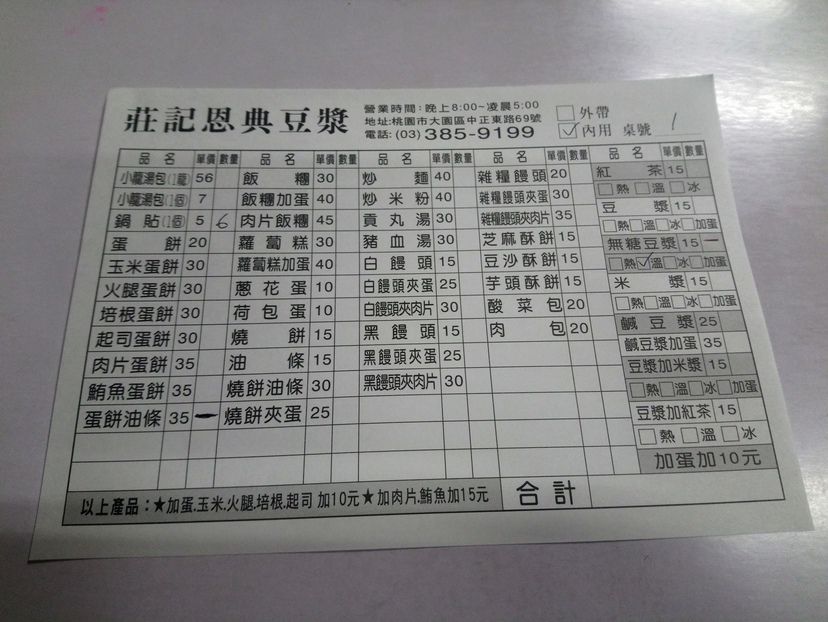 莊記恩典豆漿
營業時間：晚上8:00~凌晨5:00
地址:桃園市大園區中正東路69號
電話: (03) 385-9199
□外帶
☑內用 桌號 1
品名 單價 數量 品名 單價 數量 品名 單價 數量 品名 單價 數量 品名 單價 數量
小籠湯包(1籠) 56 飯糰 30 炒麵 40 雜糧饅頭 20 紅茶 15
□熱□溫□冰
小籠湯包(1個) 7 飯糰加蛋 40 炒米粉 40 雜糧饅頭夾蛋 30 豆漿 15
鍋貼(1個) 5 6 肉片飯糰 45 貢丸湯 30 雜糧饅頭夾肉片 35 □熱□溫□冰□加蛋
蛋餅 20 蘿蔔糕 30 豬血湯 30 芝麻酥餅 15 無糖豆漿 15 一
玉米蛋餅 30 蘿蔔糕加蛋 40 白饅頭 15 豆沙酥餅 15 □熱☑溫□冰□加蛋
火腿蛋餅 30 蔥花蛋 10 白饅頭夾蛋 25 芋頭酥餅 15 米漿 15
培根蛋餅 30 荷包蛋 10 白饅頭夾肉片 30 酸菜包 20 □熱□溫□冰□加蛋
起司蛋餅 30 燒餅 15 黑饅頭 15 肉包 20 鹹豆漿 25
鹹豆漿加蛋 35
肉片蛋餅 35 油條 15 黑饅頭夾蛋 25 豆漿加米漿 15
鮪魚蛋餅 35 燒餅油條 30 黑饅頭夾肉片 30 □熱□溫□冰□加蛋
蛋餅油條 35 一 燒餅夾蛋 25 豆漿加紅茶 15
□熱□溫□冰
加蛋加10元
以上產品：★加蛋.玉米.火腿.培根.起司 加10元★加肉片.鮪魚加15元 合計